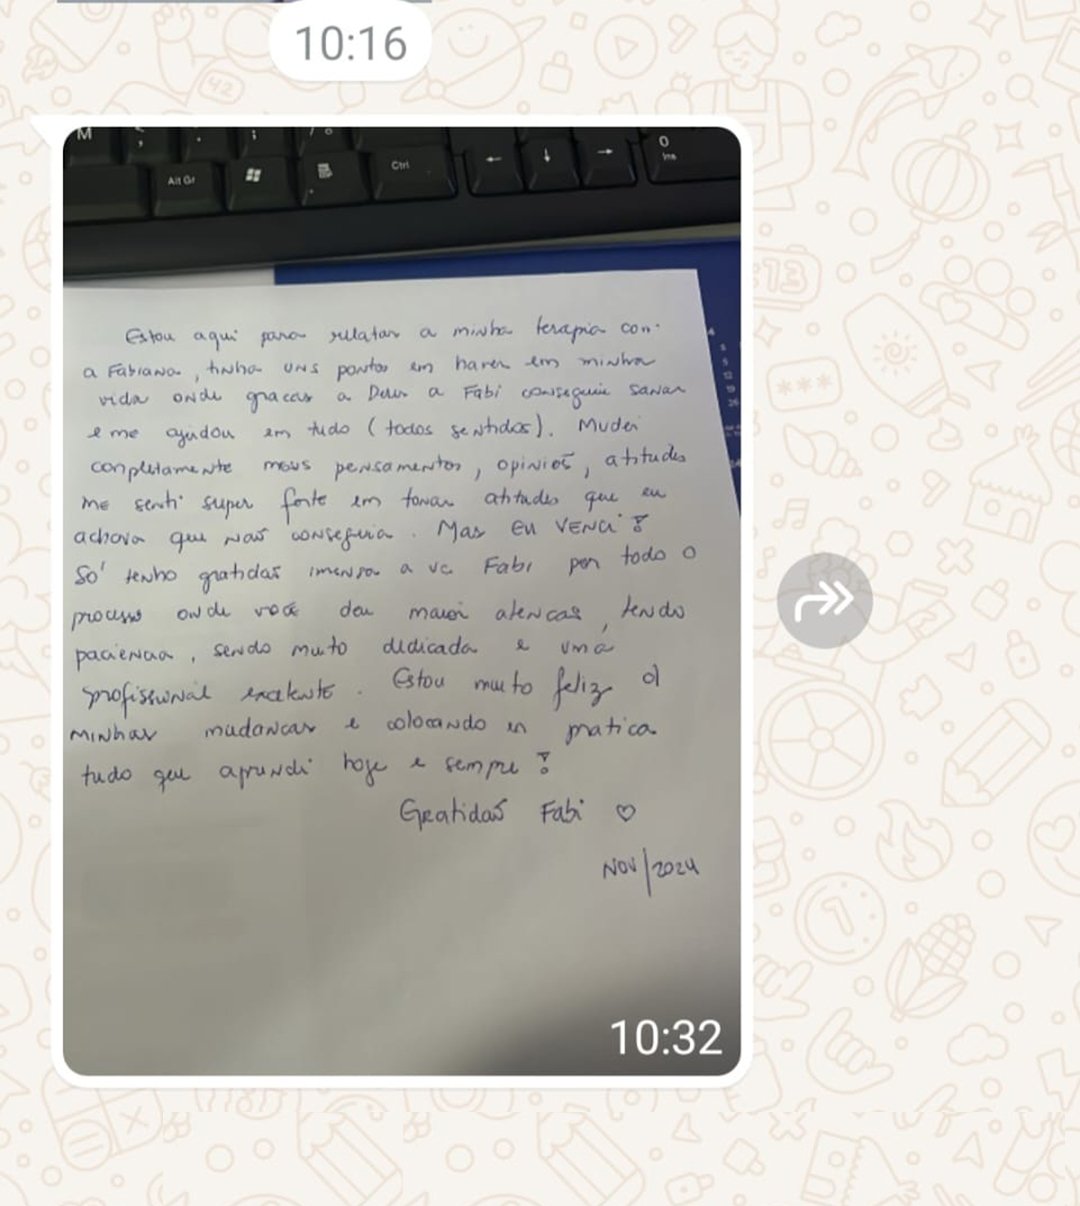 10:16
M
;
Alt Gr
Ctrl
0
Ins
Estou aqui para relatar a minha terapia com
a Fabiana, tinha uns pontos em haver em minha
vida onde gracas a Deus a Fabi conseguiu sanar
e me ajudou em tudo (todos sentidos). Mudei
completamente meus pensamentos, opiniões, atitudes
me senti super forte em tomar atitudes que eu
achava que não conseguia. Mas EU VENCI!
Só tenho gratidão imensa a vc Fabi por todo o
processo onde você deu maior atencao, tendo
paciencia, sendo muito dedicada e uma
profissional excelente. Estou muito feliz c/
minhas mudancas e colocando em pratica
tudo que aprendi hoje e sempre!
Gratidão Fabi ♡
NOV/2024
10:32